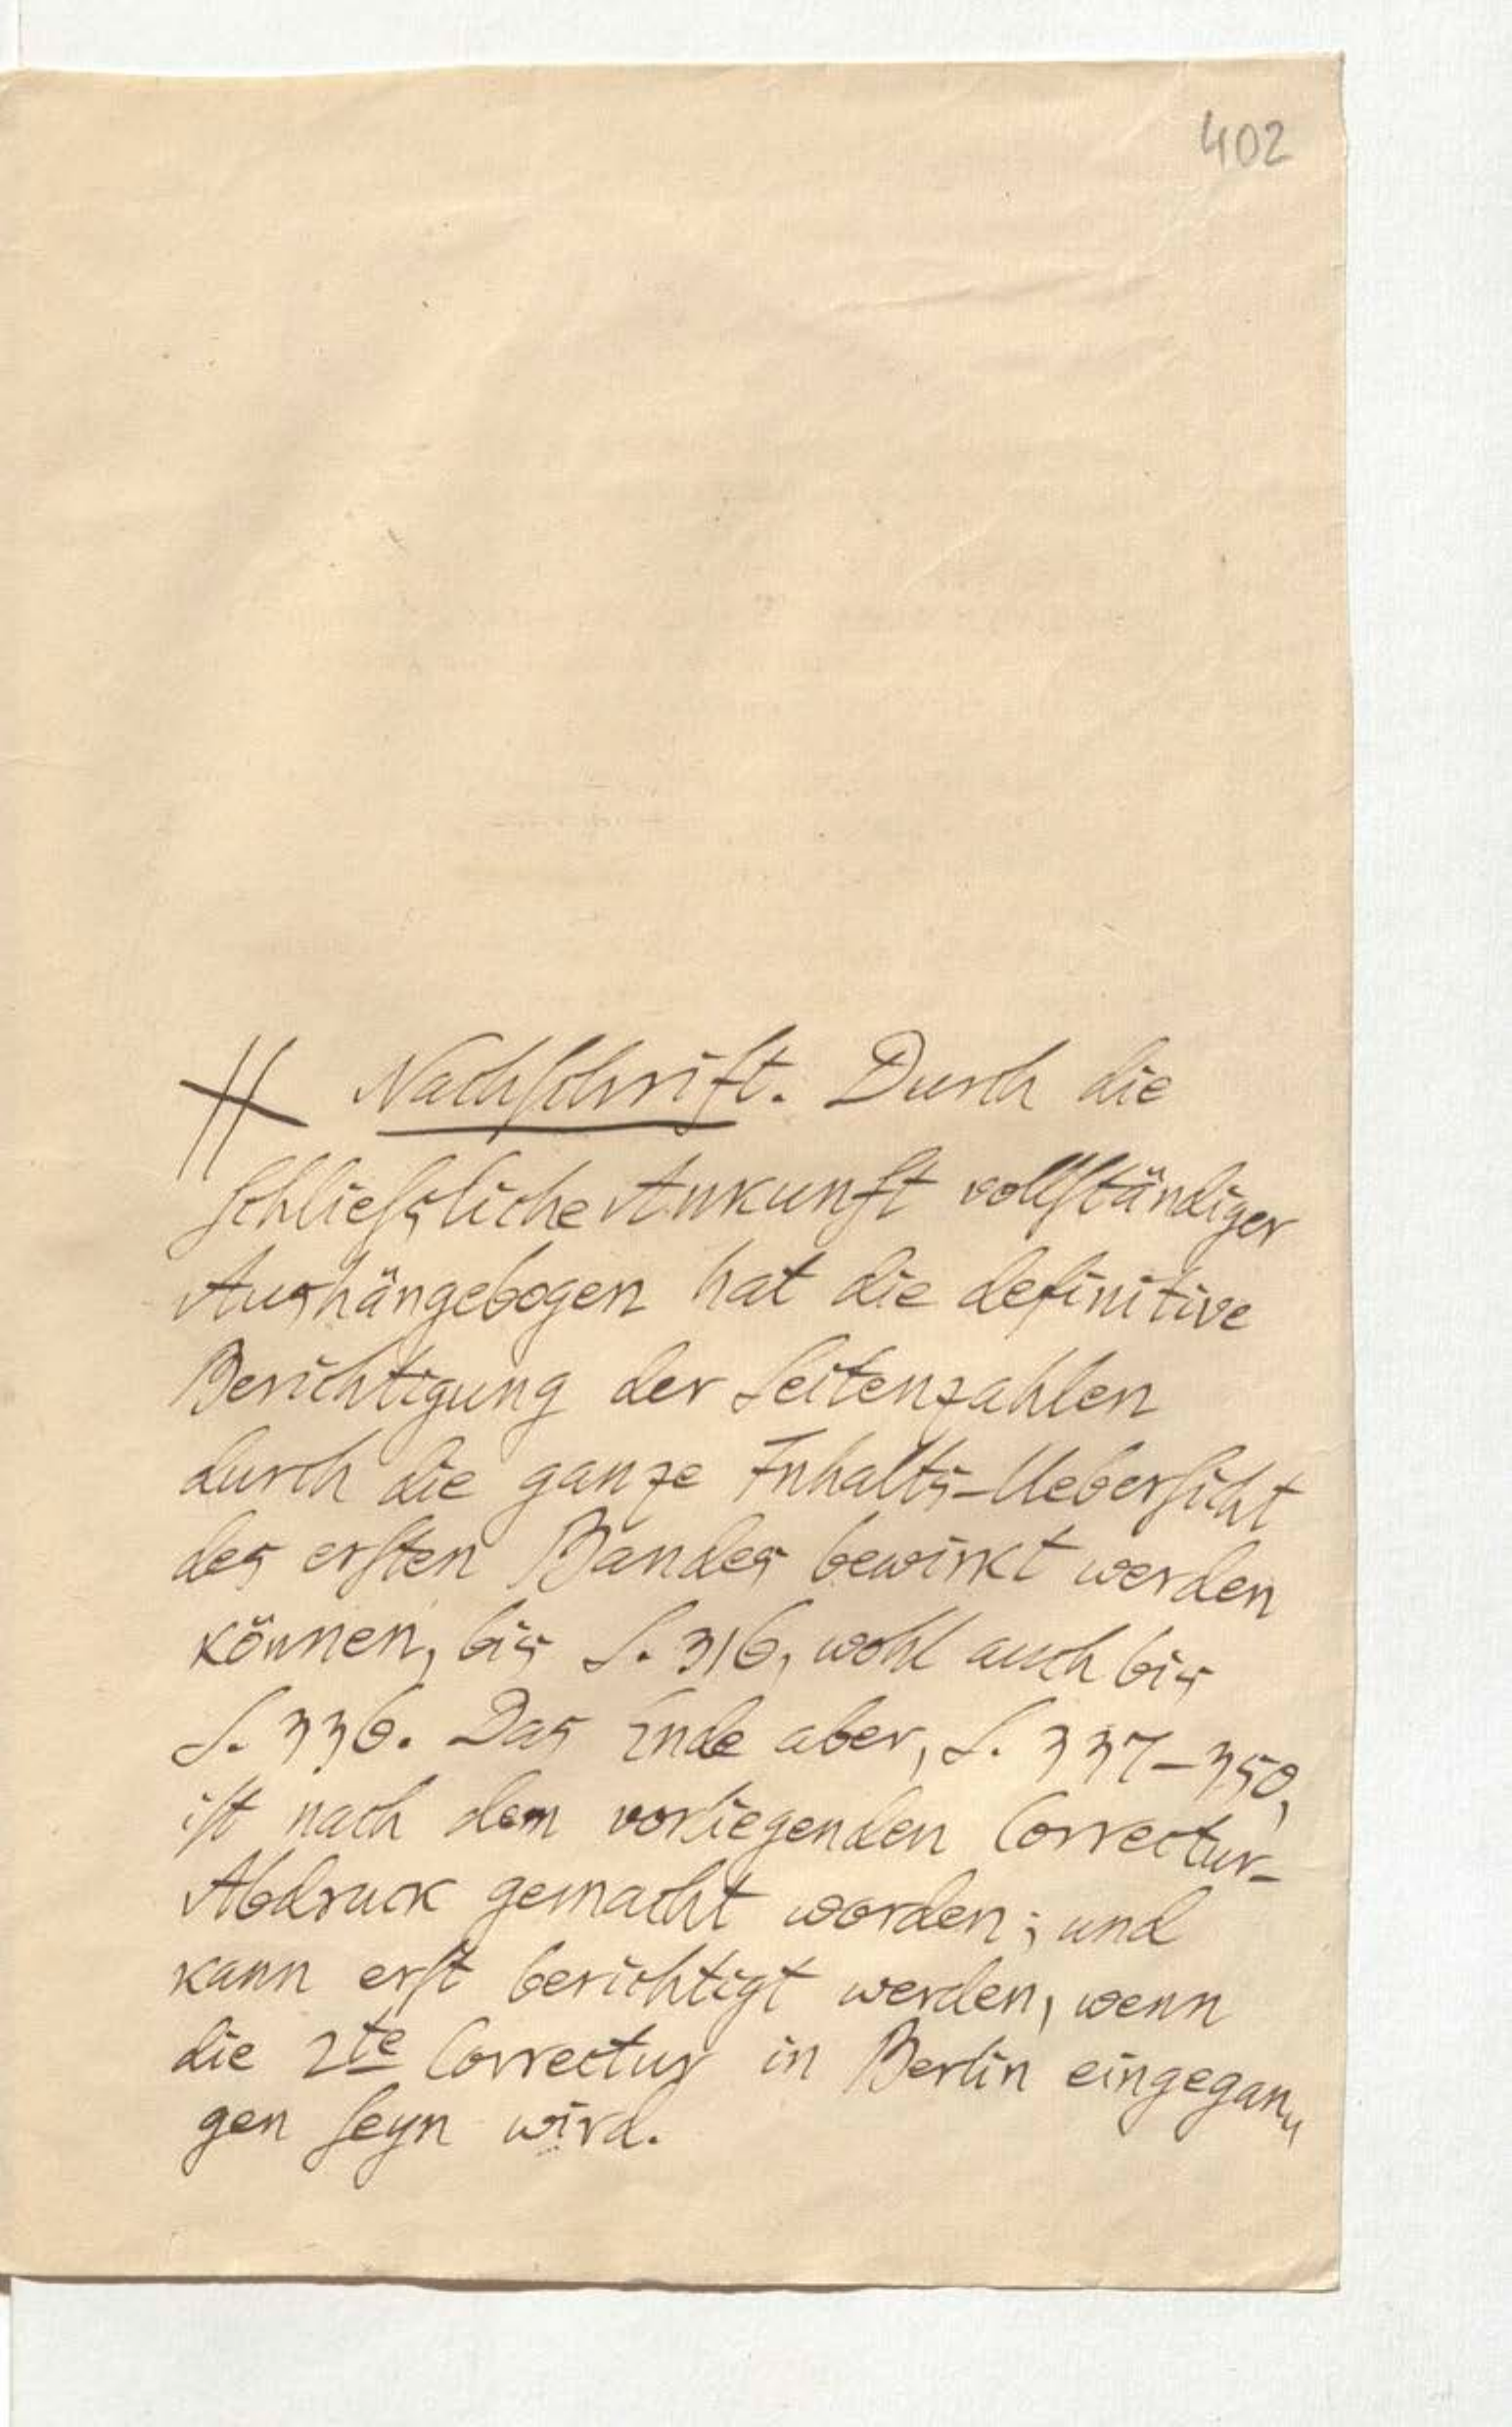 402
Nachschrift. Durch die
schliefsliche Ankunft vollständiger
Aushängebogen hat die definitive
Berichtigung der Seitenzahlen
durch die ganze Inhalts-Uebersicht
des ersten Bandes bewirkt werden
können, bis S. 316, wohl auch bis
S. 336. Das Ende aber, S. 337-350,
ist nach dem vorliegenden Correctur-
Abdruck gemacht worden; und
kann erst berichtigt werden, wenn
die 2te Correctur in Berlin eingegan-
gen seyn wird.